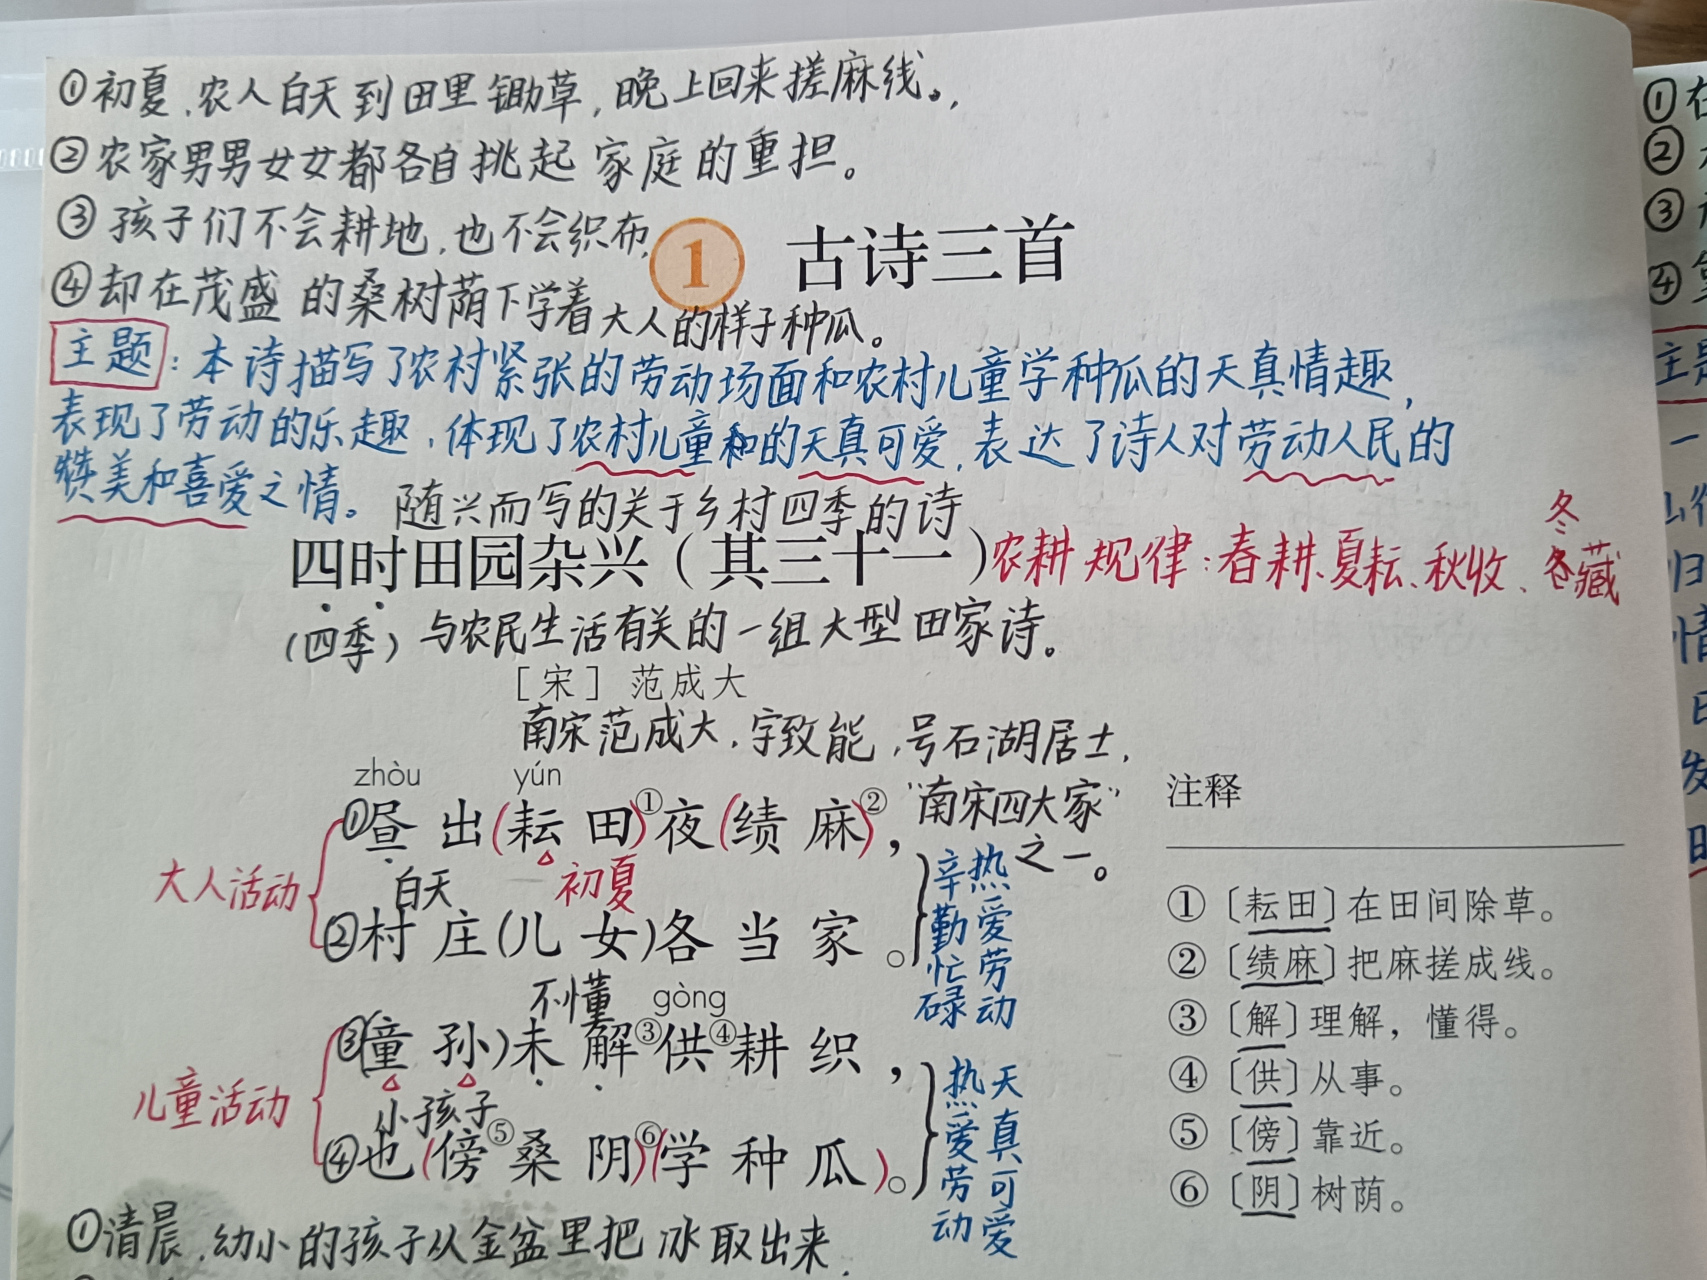 ①初夏，农人白天到田里锄草，晚上回来搓麻线。，
②农家男男女女都各自挑起家庭的重担。
③孩子们不会耕地，也不会织布，
1 古诗三首
④却在茂盛的桑树荫下学着大人的样子种瓜。
主题：本诗描写了农村紧张的劳动场面和农村儿童学种瓜的天真情趣，
表现了劳动的乐趣，体现了农村儿童和的天真可爱，表达了诗人对劳动人民的
赞美和喜爱之情。
随兴而写的关于乡村四季的诗
四时田园杂兴（其三十一）
农耕规律：春耕、夏耘、秋收、冬藏
冬
（四季）与农民生活有关的一组大型田家诗。
［宋］范成大
南宋范成大，字致能，号石湖居士，
"南宋四大家"
之一。
zhòu yún
①昼出(耘田)①夜(绩麻)②，
白天 初夏
大人活动
②村庄(儿女)各当家。
热爱劳动
辛勤忙碌
不懂 gòng
③(童孙)未解③供④耕织，
小孩子
儿童活动
④也(傍⑤桑阴)⑥(学种瓜)。
天真可爱
热爱劳动
注释
①〔耘田〕在田间除草。
②〔绩麻〕把麻搓成线。
③〔解〕理解，懂得。
④〔供〕从事。
⑤〔傍〕靠近。
⑥〔阴〕树荫。
①清晨，幼小的孩子从金盆里把冰取出来，
①在
②
③
④
主题
一
归
情
发